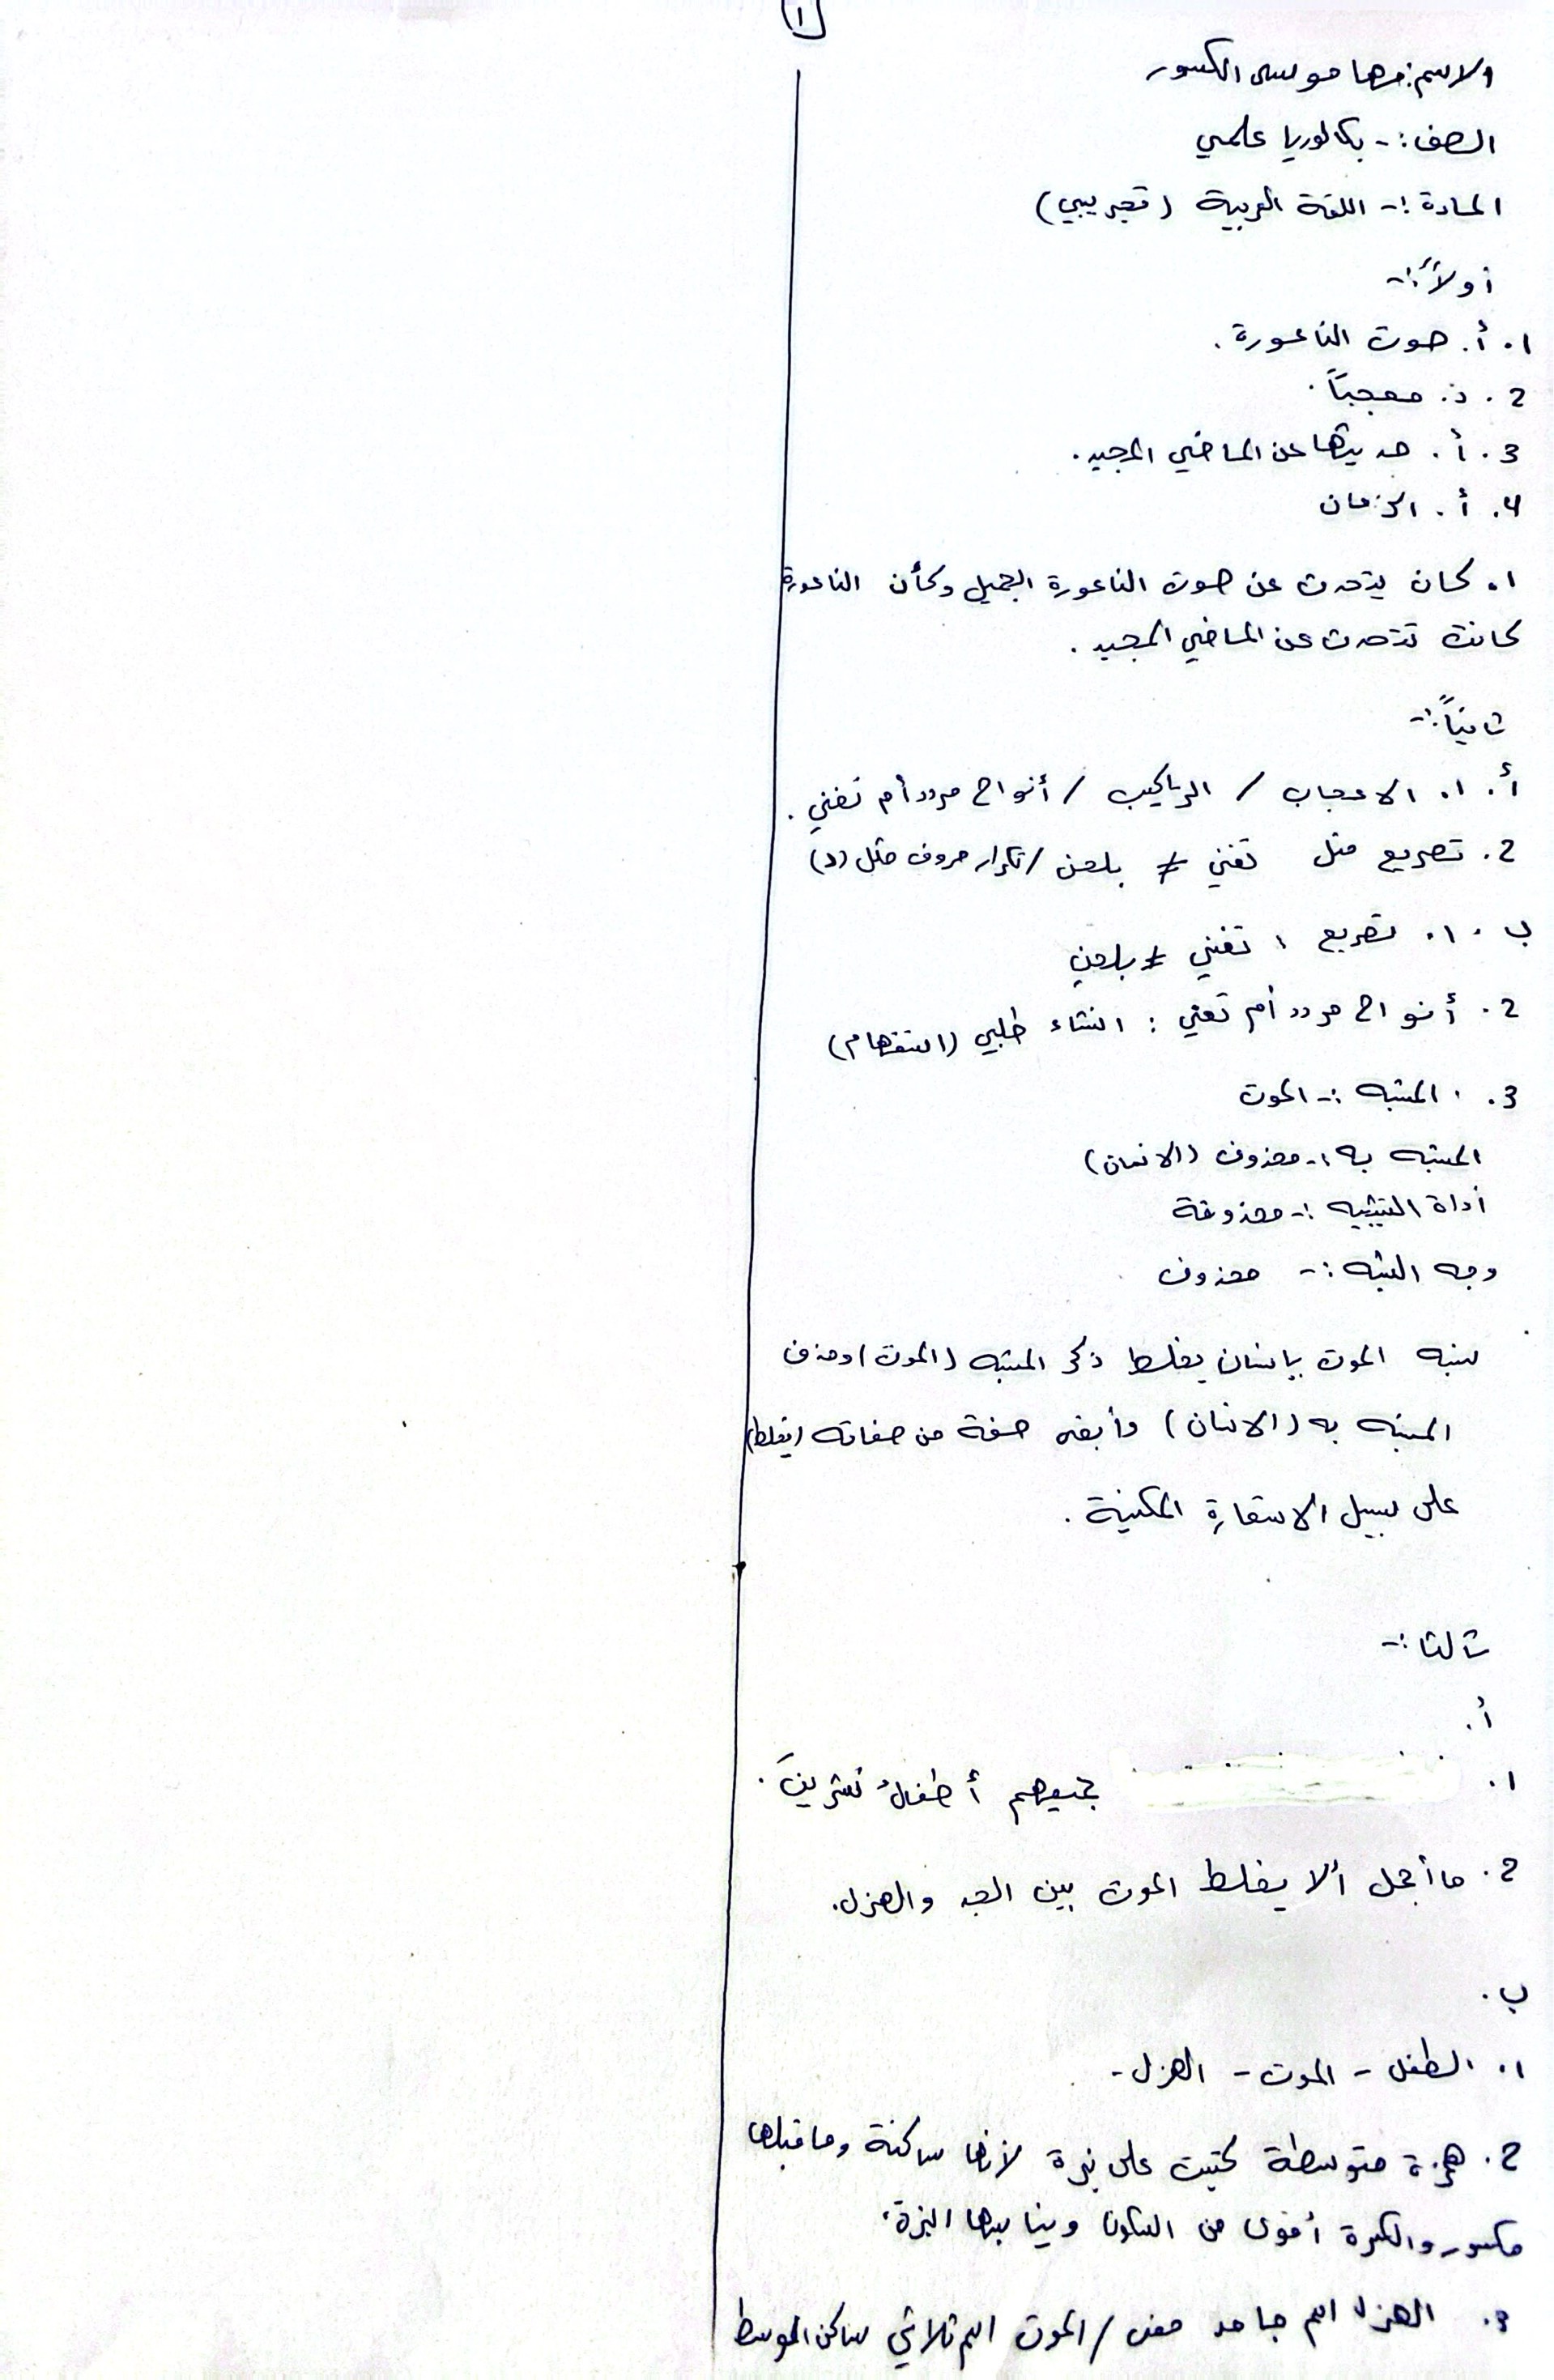 ١
الاسم: مها موسى الكسور
الصف :- بكالوريا علمي
المادة :- اللغة العربية (تجريبي)
أولاً :-
١. أ. صوت الناعورة .
2. د. معجباً .
3. أ. حديثها عن الماضي المجيد .
4. أ. الزمان
١. كان يتحدث عن صوت الناعورة الجميل وكأن الناعورة
كانت تتحدث عن الماضي المجيد .
ثانياً :-
أ. ١. الاعجاب / التراكيب / أنواح مردد أم تغني .
2. تصريع مثل تغني ≠ بلحن / تكرار حروف مثل (د)
ب . ١. تصريع : تغني ≠ بلحن
2. أنواح مردد أم تغني : انشاء طلبي (استفهام)
3. المشبه :- الموت
المشبه به :- محذوف (الانسان)
أداة التشبيه :- محذوفة
وجه الشبه :- محذوف
شبه الموت بإنسان يغلط ذكر المشبه (الموت) وحذف
المشبه به (الانسان) وأبقى صفة من صفاته (يغلط)
على سبيل الاستعارة المكنية .
ثالثا :-
أ.
١. جميعهم أطفالُ تشرينَ .
2. ما أجمل ألا يغلط الموت بين الجد والهزل .
ب .
١. الطفل - الموت - الهزل -
2. همزة متوسطة كتبت على نبرة لأنها ساكنة وما قبلها
مكسور والكسرة أقوى من السكون ويناسبها النبرة .
3. الهزل اسم جامد معنى / الموت اسم ثلاثي ساكن الوسط